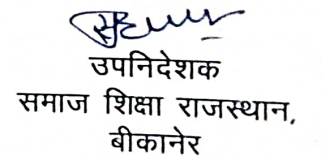 उपनिदेशक
समाज शिक्षा राजस्थान,
बीकानेर